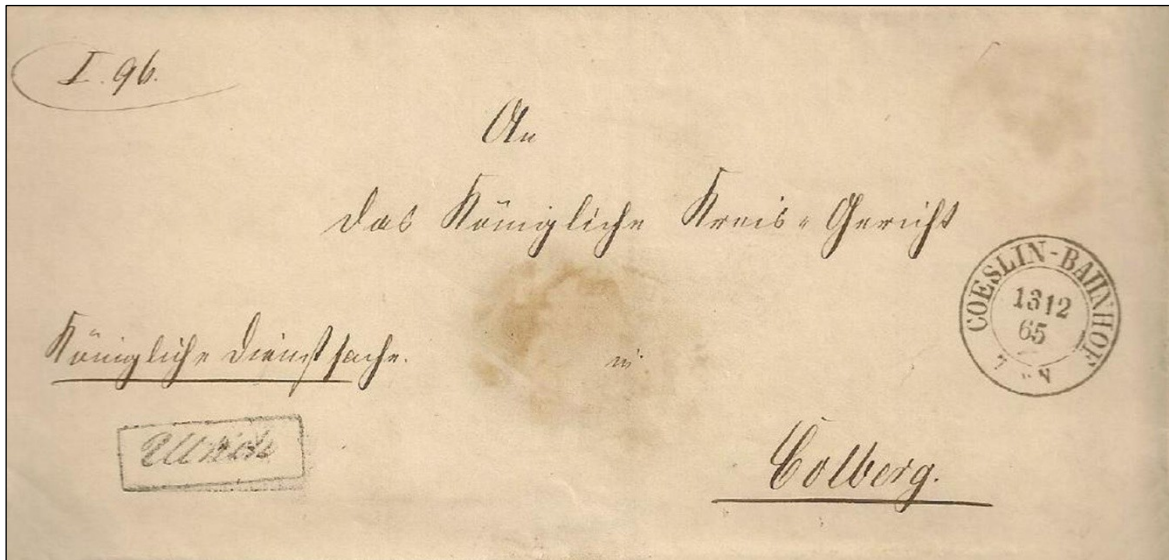 I. 96.
An
das Königliche Kreis-Gericht
COESLIN-BAHNHOF
1312
65
7 N
Königliche Dienstsache.
in
Colberg.